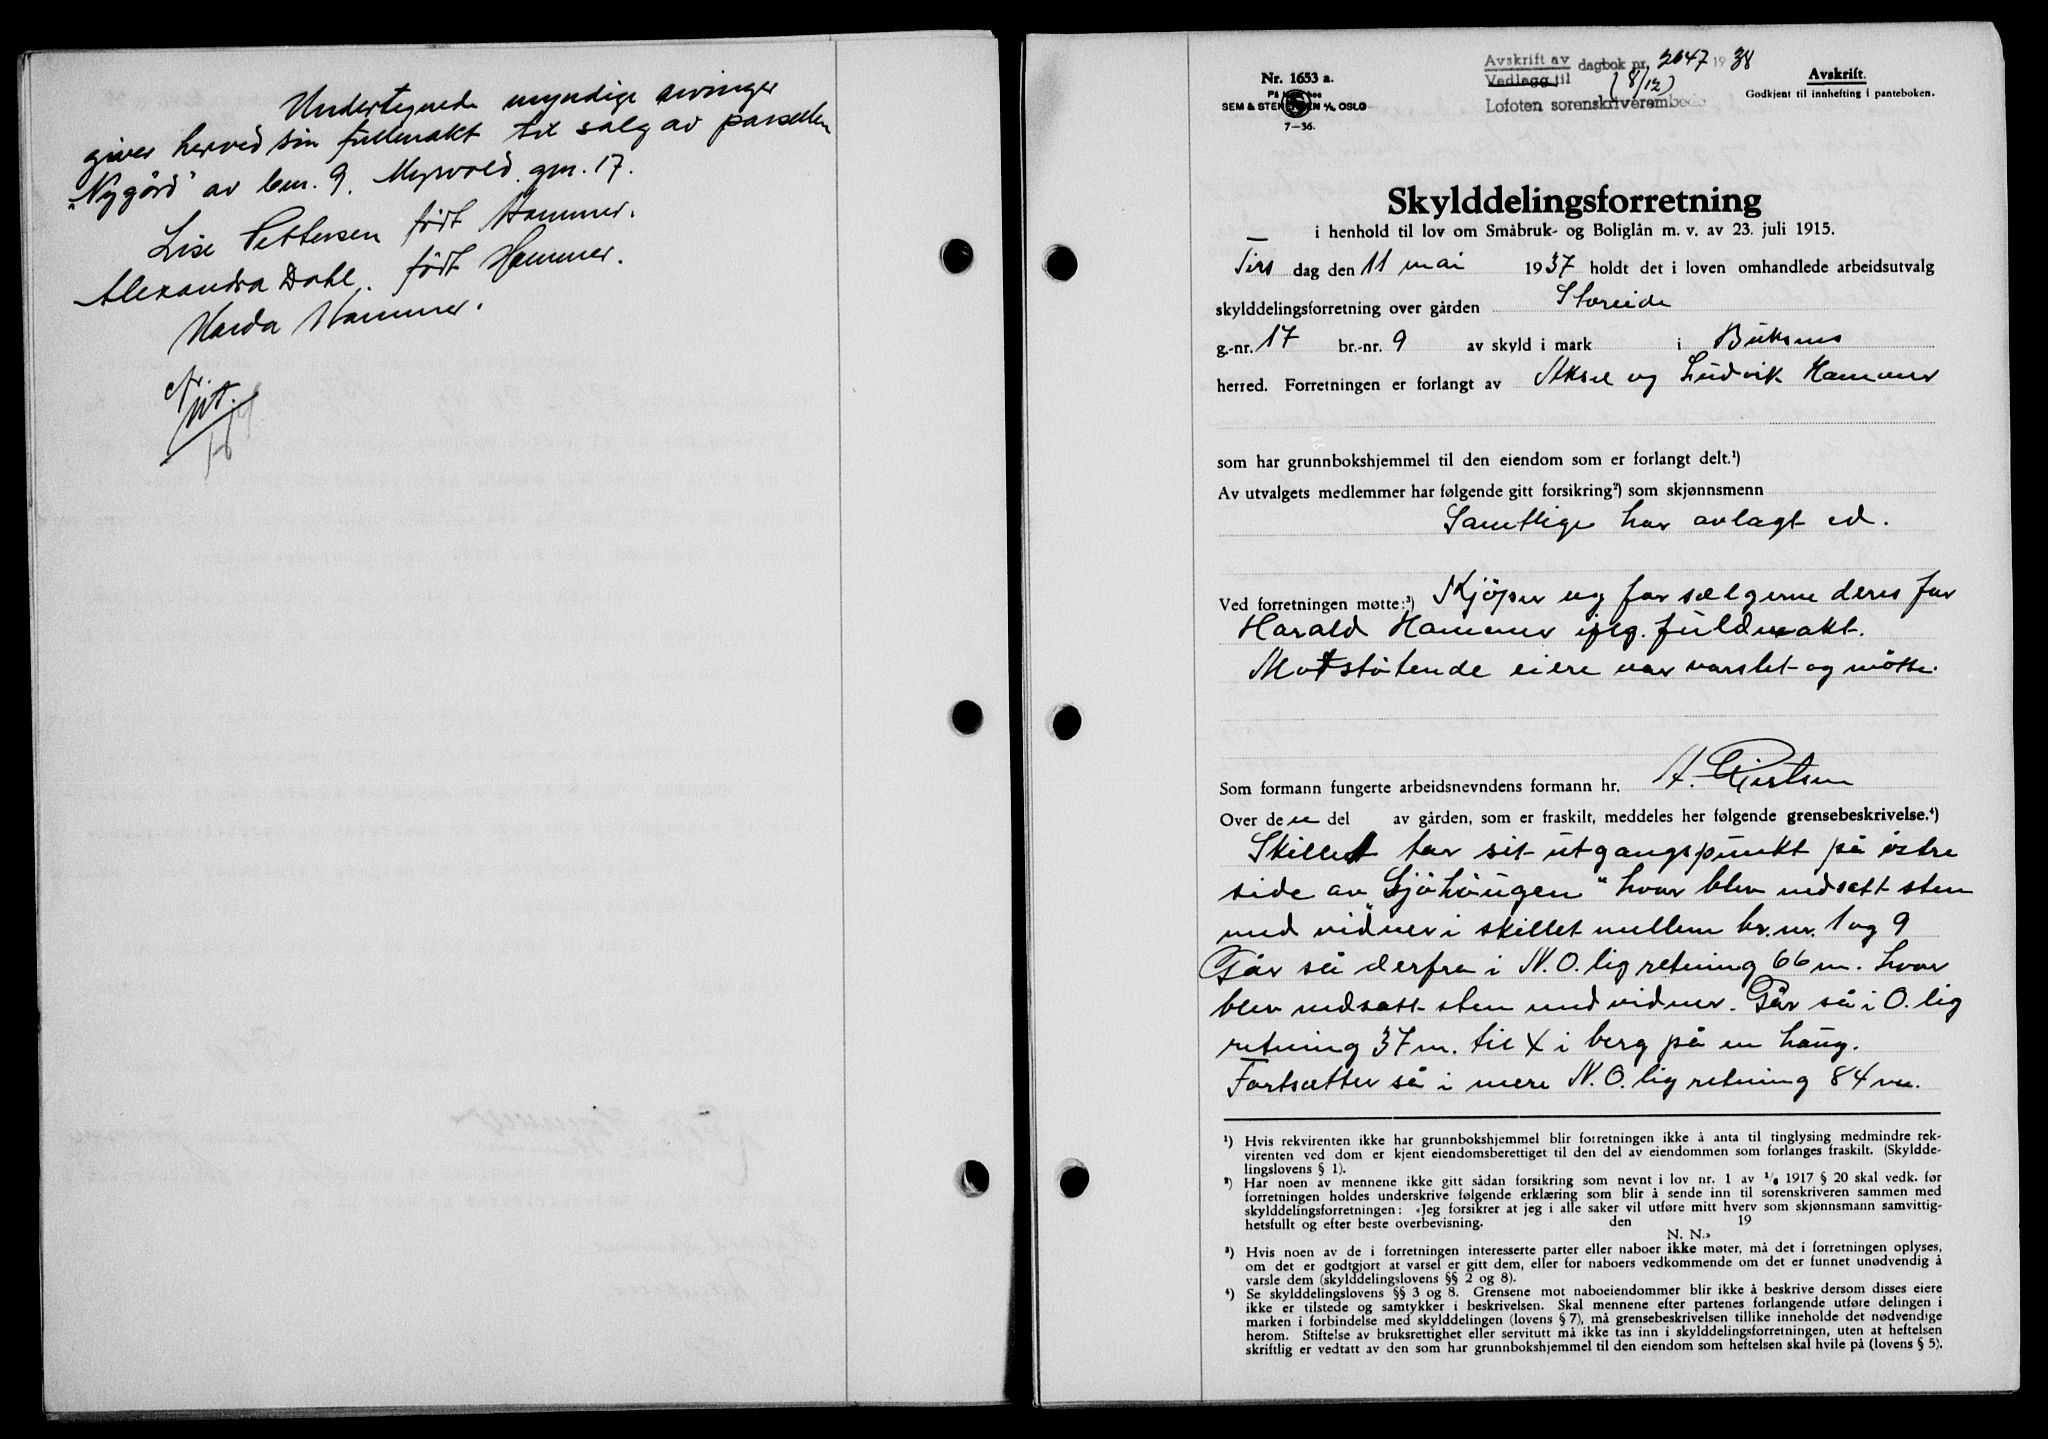 Undertegnede myndige arvinger
giver herved sin fullmakt til salg av parsellen
"Nygård" av bnr. 9. Myrvold. gnr. 17.
Lise Pettersen født Hammer.
Alexandra Dahl. født Hammer.
Harda Hammer.
Nr. 1653 a.
På lager hos
SEM & STENERSEN A/S, OSLO
7-36.
Avskrift av
Vedlegg til
dagbok nr. 2047 1938
(8/12)
Lofoten sorenskriverembede
Avskrift.
Godkjent til innhefting i panteboken.
Skylddelingsforretning
i henhold til lov om Småbruk- og Boliglån m. v. av 23. juli 1915.
Tirs dag den 11 mai 1937 holdt det i loven omhandlede arbeidsutvalg
skylddelingsforretning over gården Storeide
g.-nr. 17 br.-nr. 9 av skyld i mark i Buksnes
herred. Forretningen er forlangt av Aksel og Ludvik Hammer
som har grunnbokshjemmel til den eiendom som er forlangt delt.¹)
Av utvalgets medlemmer har følgende gitt forsikring²) som skjønnsmenn
Samtlige har avlagt ed.
Ved forretningen møtte:³) Kjøper og for sælgerne deres far
Harald Hammer ifLg. fuldmakt.
Motstøtende eiere var varslet og møtte.
Som formann fungerte arbeidsnevndens formann hr. A. Giertsen
Over den del av gården, som er fraskilt, meddeles her følgende grensebeskrivelse.⁴)
Skillet tar sit utgangspunkt på østre
side av "Sjøhaugen" hvor blev nedsatt sten
med vidner i skillet mellem br. nr. 1 og 9
Går så derfra i N.O. lig retning 66 m. hvor
blev nedsatt sten med vidner. Går så i O. lig
retning 37 m. til X i berg på en haug.
Fortsætter så i mere N.O. lig retning 84 m.
¹) Hvis rekvirenten ikke har grunnbokshjemmel blir forretningen ikke å anta til tinglysing medmindre rek-
virenten ved dom er kjent eiendomsberettiget til den del av eiendommen som forlanges fraskilt. (Skyldde-
lingslovens § 1).
²) Har noen av mennene ikke gitt sådan forsikring som nevnt i lov nr. 1 av 1/6 1917 § 20 skal vedk. før
forretningen holdes underskrive følgende erklæring som blir å sende inn til sorenskriveren sammen med
skylddelingsforretningen: «Jeg forsikrer at jeg i alle saker vil utføre mitt hverv som skjønnsmann samvittig-
hetsfullt og efter beste overbevisning. den 19
N. N.»
³) Hvis noen av de i forretningen interesserte parter eller naboer ikke møter, må det i forretningen oplyses,
om det er godtgjort at varsel er gitt dem, eller for naboers vedkommende om det er funnet unødvendig å
varsle dem (skylddelingslovens §§ 2 og 8).
⁴) Se skylddelingslovens §§ 3 og 8. Grensene mot naboeiendommer blir ikke å beskrive dersom disses eiere
ikke er tilstede og samtykker i beskrivelsen. Skal mennene efter partenes forlangende utføre delingen i
marken i forbindelse med skylddelingen (lovens § 7), må grensebeskrivelsen tillike inneholde det nødvendige
herom. Stiftelse av bruksrettighet eller servitutt må ikke tas inn i skylddelingsforretningen, uten at heftelsen
skriftlig er vedtatt av den som har grunnbokshjemmel til den eiendom som heftelsen skal hvile på (lovens § 5).